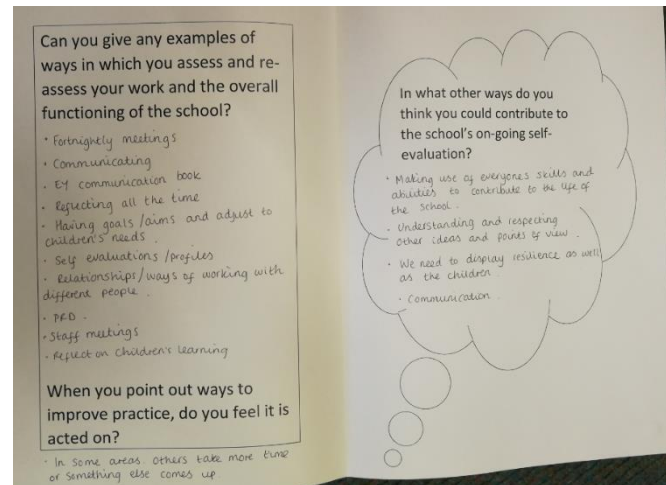 Can you give any examples of
ways in which you assess and re-
assess your work and the overall
functioning of the school?
· Fortnightly meetings
· Communicating
· EY communication book
· Reflecting all the time
· Having goals /aims and adjust to
children's needs.
· Self evaluations /profiles
· Relationships/ways of working with
different people.
· PRD.
· Staff meetings
· Reflect on children's learning
When you point out ways to
improve practice, do you feel it is
acted on?
· In some areas. Others take more time
or something else comes up.
In what other ways do you
think you could contribute to
the school's on-going self-
evaluation?
· Making use of everyones skills and
abilities to contribute to the life of
the school.
· Understanding and respecting
other ideas and points of view.
· We need to display resilience as well
as the children.
· Communication.